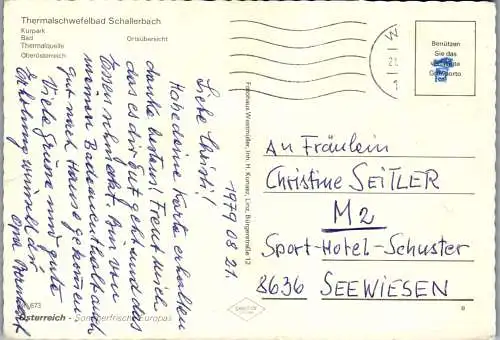 Thermalschwefelbad Schallerbach
Kurpark
Bad Ortsübersicht
Thermalquelle
Oberösterreich
Benützen
Sie das
Liebe Christi!
1979 08 21.
Habe deine Karte erhalten
danke bestens! Freut mich
das es dir gut geht und das
Essen schmeckt. Bin von
meinem Badeaufenthalt auch
gut nach Hause gekommen
Viele Grüsse und gute
Erholung wünscht dir
Opa
An Fräulein
Christine SEITLER
M2
Sport-Hotel-Schuster
8636 SEEWIESEN
Fotohaus Westmüller, Inh. H. Kurnasz, Linz, Bürgerstraße 12
Österreich - Sommerfrische Europas